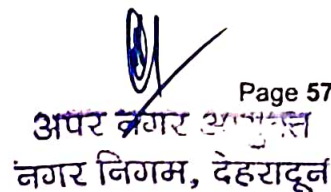 Page 57
अपर नगर आयुक्त
नगर निगम, देहरादून